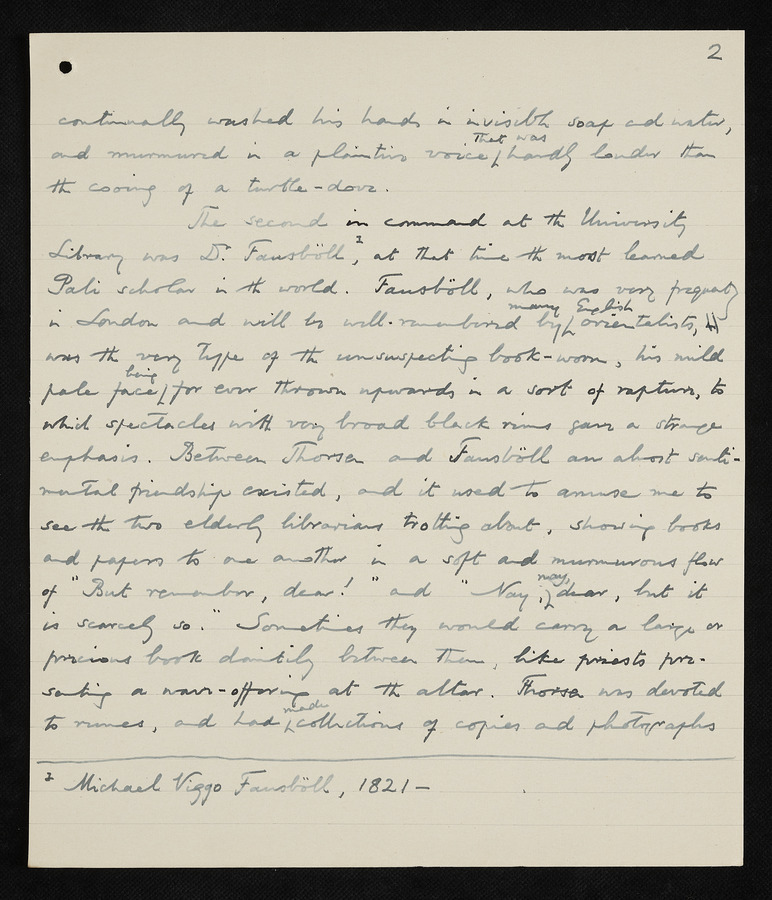 2
continually washed his hands in invisible soap and water,
and murmured in a plaintive voice that was hardly louder than
the cooing of a turtle-dove.
The second in command at the University
Library was Dr. Fausböll,² at that time the most learned
Pali scholar in the world. Fausböll, who was very frequently
in London and will be well-remembered by many English orientalists,
was the very type of the unsuspecting book-worm, his mild
pale face being for ever thrown upwards in a sort of rapture, to
which spectacles with very broad black rims gave a strange
emphasis. Between Thorsen and Fausböll an almost senti-
mental friendship existed, and it used to amuse me to
see the two elderly librarians trotting about, showing books
and papers to one another in a soft and murmurous flow
of "But remember, dear!" and "Nay, nay, dear, but it
is scarcely so." Sometimes they would carry a large or
precious book daintily between them, like priests pre-
senting a wave-offering at the altar. Thorsen was devoted
to runes, and had made collections of copies and photographs
² Michael Viggo Fausböll, 1821 –